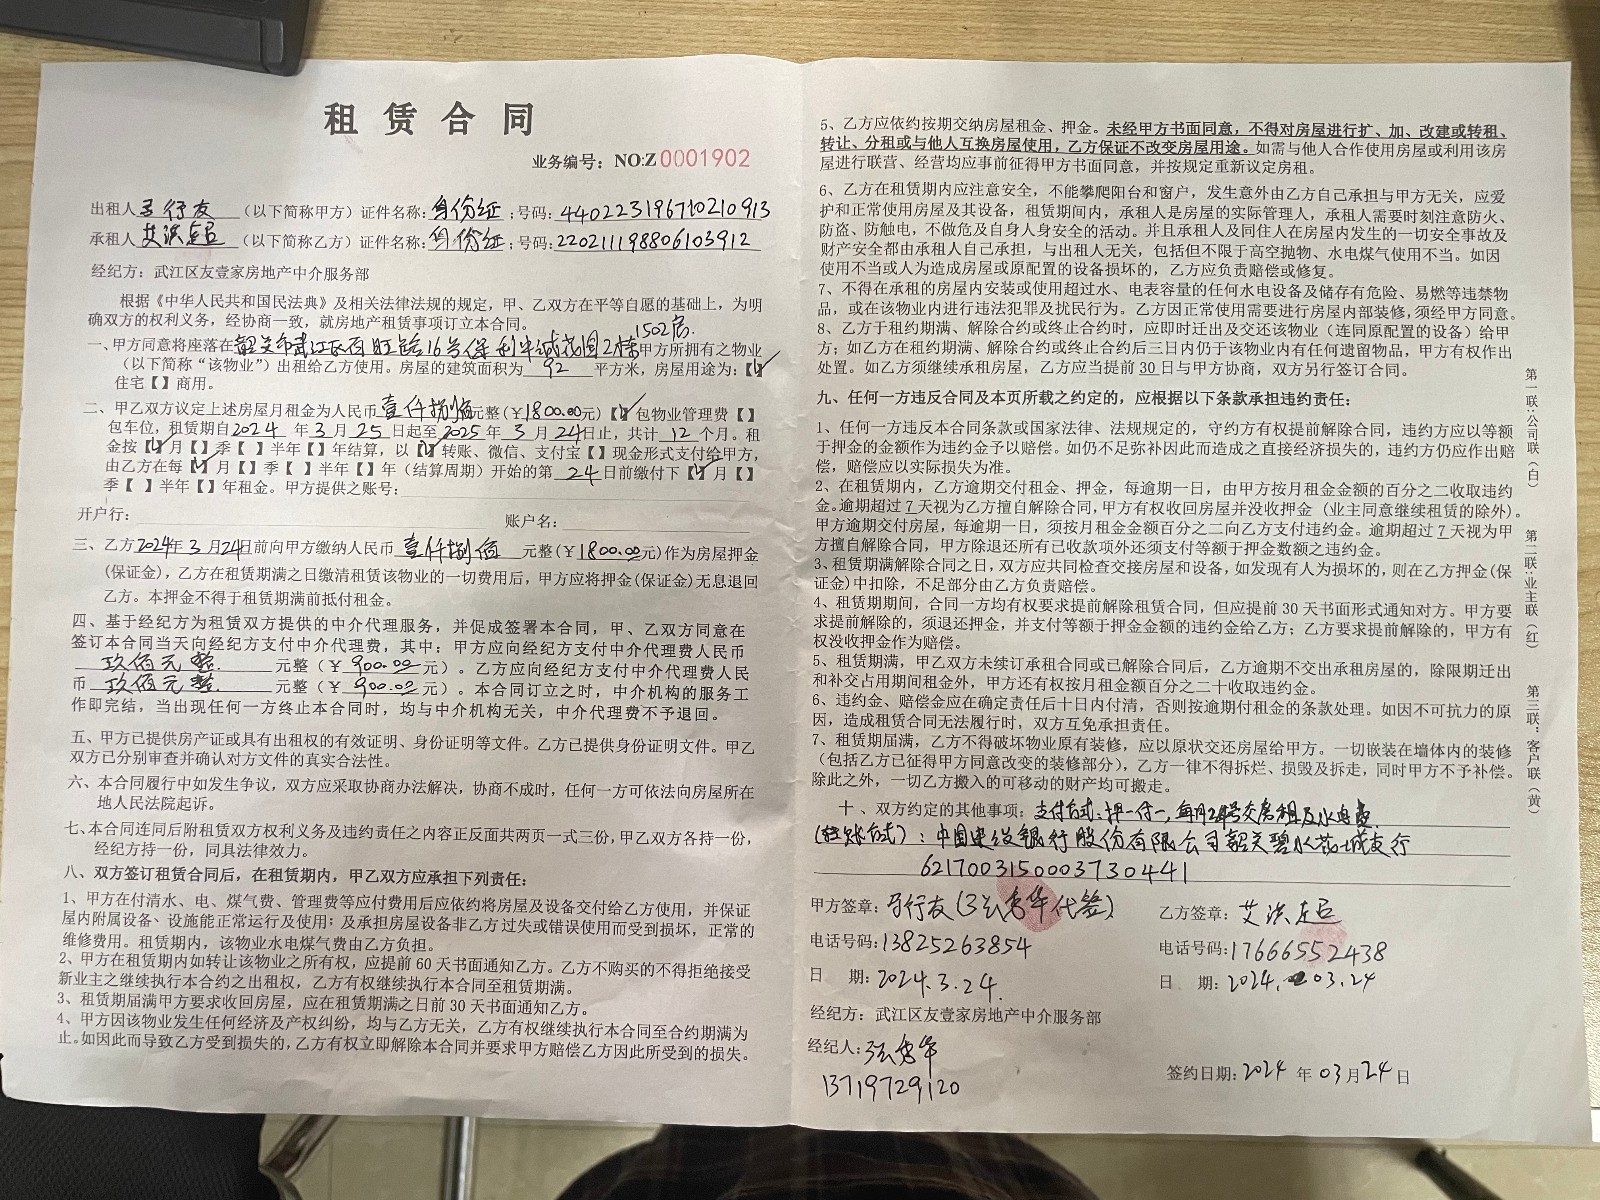 租赁合同
业务编号：NO:Z0001902
出租人 行友 （以下简称甲方）证件名称：身份证；号码：440223196710210913
承租人 艾洪 （以下简称乙方）证件名称：身份证；号码：220211198806103912
经纪方：武江区友壹家房地产中介服务部
根据《中华人民共和国民法典》及相关法律法规的规定，甲、乙双方在平等自愿的基础上，为明
确双方的权利义务，经协商一致，就房地产租赁事项订立本合同。
1502房.
一、甲方同意将座落在韶关市武江区百旺路16号保利中诚花园2栋甲方所拥有之物业
（以下简称“该物业”）出租给乙方使用。房屋的建筑面积为 92 平方米，房屋用途为：【✓】
住宅【 】商用。
二、甲乙双方议定上述房屋月租金为人民币壹仟捌佰元整(￥1800.00元)【✓】包物业管理费【 】
包车位，租赁期自2024 年 3 月 25 日起至2025年 3 月 24日止，共计 12 个月。租
金按【✓】月【 】季【 】半年【 】年结算，以【✓】转账、微信、支付宝【 】现金形式支付给甲方，
由乙方在每【✓】月【 】季【 】半年【 】年（结算周期）开始的第 24日前缴付下【✓】月【 】
季【 】半年【 】年租金。甲方提供之账号：
开户行： 账户名：
三、乙方2024年3月24日前向甲方缴纳人民币 壹仟捌佰 元整(￥1800.00元)作为房屋押金
(保证金)，乙方在租赁期满之日缴清租赁该物业的一切费用后，甲方应将押金(保证金)无息退回
乙方。本押金不得于租赁期满前抵付租金。
四、基于经纪方为租赁双方提供的中介代理服务，并促成签署本合同，甲、乙双方同意在
签订本合同当天向经纪方支付中介代理费，其中：甲方应向经纪方支付中介代理费人民币
玖佰元整. 元整（￥ 900.00 元）。乙方应向经纪方支付中介代理费人民
币 玖佰元整 元整（￥ 900.00 元）。本合同订立之时，中介机构的服务工
作即完结，当出现任何一方终止本合同时，均与中介机构无关，中介代理费不予退回。
五、甲方已提供房产证或具有出租权的有效证明、身份证明等文件。乙方已提供身份证明文件。甲乙
双方已分别审查并确认对方文件的真实合法性。
六、本合同履行中如发生争议，双方应采取协商办法解决，协商不成时，任何一方可依法向房屋所在
地人民法院起诉。
七、本合同连同后附租赁双方权利义务及违约责任之内容正反面共两页一式三份，甲乙双方各持一份，
经纪方持一份，同具法律效力。
八、双方签订租赁合同后，在租赁期内，甲乙双方应承担下列责任：
1、甲方在付清水、电、煤气费、管理费等应付费用后应依约将房屋及设备交付给乙方使用，并保证
屋内附属设备、设施能正常运行及使用；及承担房屋设备非乙方过失或错误使用而受到损坏，正常的
维修费用。租赁期内，该物业水电煤气费由乙方负担。
2、甲方在租赁期内如转让该物业之所有权，应提前60天书面通知乙方。乙方不购买的不得拒绝接受
新业主之继续执行本合约之出租权，乙方有权继续执行本合同至租赁期满。
3、租赁期届满甲方要求收回房屋，应在租赁期满之日前30天书面通知乙方。
4、甲方因该物业发生任何经济及产权纠纷，均与乙方无关，乙方有权继续执行本合同至合约期满为
止。如因此而导致乙方受到损失的，乙方有权立即解除本合同并要求甲方赔偿乙方因此所受到的损失。
5、乙方应依约按期交纳房屋租金、押金。未经甲方书面同意，不得对房屋进行扩、加、改建或转租、
转让、分租或与他人互换房屋使用，乙方保证不改变房屋用途。如需与他人合作使用房屋或利用该房
屋进行联营、经营均应事前征得甲方书面同意，并按规定重新议定房租。
6、乙方在租赁期内应注意安全，不能攀爬阳台和窗户，发生意外由乙方自己承担与甲方无关，应爱
护和正常使用房屋及其设备，租赁期间内，承租人是房屋的实际管理人，承租人需要时刻注意防火、
防盗、防触电，不做危及自身人身安全的活动。并且承租人及同住人在房屋内发生的一切安全事故及
财产安全都由承租人自己承担，与出租人无关，包括但不限于高空抛物、水电煤气使用不当。如因
使用不当或人为造成房屋或原配置的设备损坏的，乙方应负责赔偿或修复。
7、不得在承租的房屋内安装或使用超过水、电表容量的任何水电设备及储存有危险、易燃等违禁物
品，或在该物业内进行违法犯罪及扰民行为。乙方因正常使用需要进行房屋内部装修，须经甲方同意。
8、乙方于租约期满、解除合约或终止合约时，应即时迁出及交还该物业（连同原配置的设备）给甲
方；如乙方在租约期满、解除合约或终止合约后三日内仍于该物业内有任何遗留物品，甲方有权作出
处置。如乙方须继续承租房屋，乙方应当提前30日与甲方协商，双方另行签订合同。
九、任何一方违反合同及本页所载之约定的，应根据以下条款承担违约责任：
1、任何一方违反本合同条款或国家法律、法规规定的，守约方有权提前解除合同，违约方应以等额
于押金的金额作为违约金予以赔偿。如仍不足弥补因此而造成之直接经济损失的，违约方仍应作出赔
偿，赔偿应以实际损失为准。
2、在租赁期内，乙方逾期交付租金、押金，每逾期一日，由甲方按月租金金额的百分之二收取违约
金。逾期超过7天视为乙方擅自解除合同，甲方有权收回房屋并没收押金（业主同意继续租赁的除外）。
甲方逾期交付房屋，每逾期一日，须按月租金金额百分之二向乙方支付违约金。逾期超过7天视为甲
方擅自解除合同，甲方除退还所有已收款项外还须支付等额于押金数额之违约金。
3、租赁期满解除合同之日，双方应共同检查交接房屋和设备，如发现有人为损坏的，则在乙方押金(保
证金)中扣除，不足部分由乙方负责赔偿。
4、租赁期期间，合同一方均有权要求提前解除租赁合同，但应提前30天书面形式通知对方。甲方要
求提前解除的，须退还押金，并支付等额于押金金额的违约金给乙方；乙方要求提前解除的，甲方有
权没收押金作为赔偿。
5、租赁期满，甲乙双方未续订承租合同或已解除合同后，乙方逾期不交出承租房屋的，除限期迁出
和补交占用期间租金外，甲方还有权按月租金额百分之二十收取违约金。
6、违约金、赔偿金应在确定责任后十日内付清，否则按逾期付租金的条款处理。如因不可抗力的原
因，造成租赁合同无法履行时，双方互免承担责任。
7、租赁期届满，乙方不得破坏物业原有装修，应以原状交还房屋给甲方。一切嵌装在墙体内的装修
（包括乙方已征得甲方同意改变的装修部分），乙方一律不得拆烂、损毁及拆走，同时甲方不予补偿。
除此之外，一切乙方搬入的可移动的财产均可搬走。
十、双方约定的其他事项：支付方式：押一付一，每月24号交房租及水电费
(转账方式)：中国建设银行股份有限公司韶关碧水花城支行
6217003150003730441
甲方签章：  行友(张秀华代签)
乙方签章：艾洪
电话号码：13825263854
电话号码：17666552438
日 期：2024.3.24.
日 期：2024.03.24
经纪方：武江区友壹家房地产中介服务部
经纪人：张秀华
13719729120
签约日期：2024 年 03月24日
第一联：公司联（白） 第二联：业主联（红） 第三联：客户联（黄）